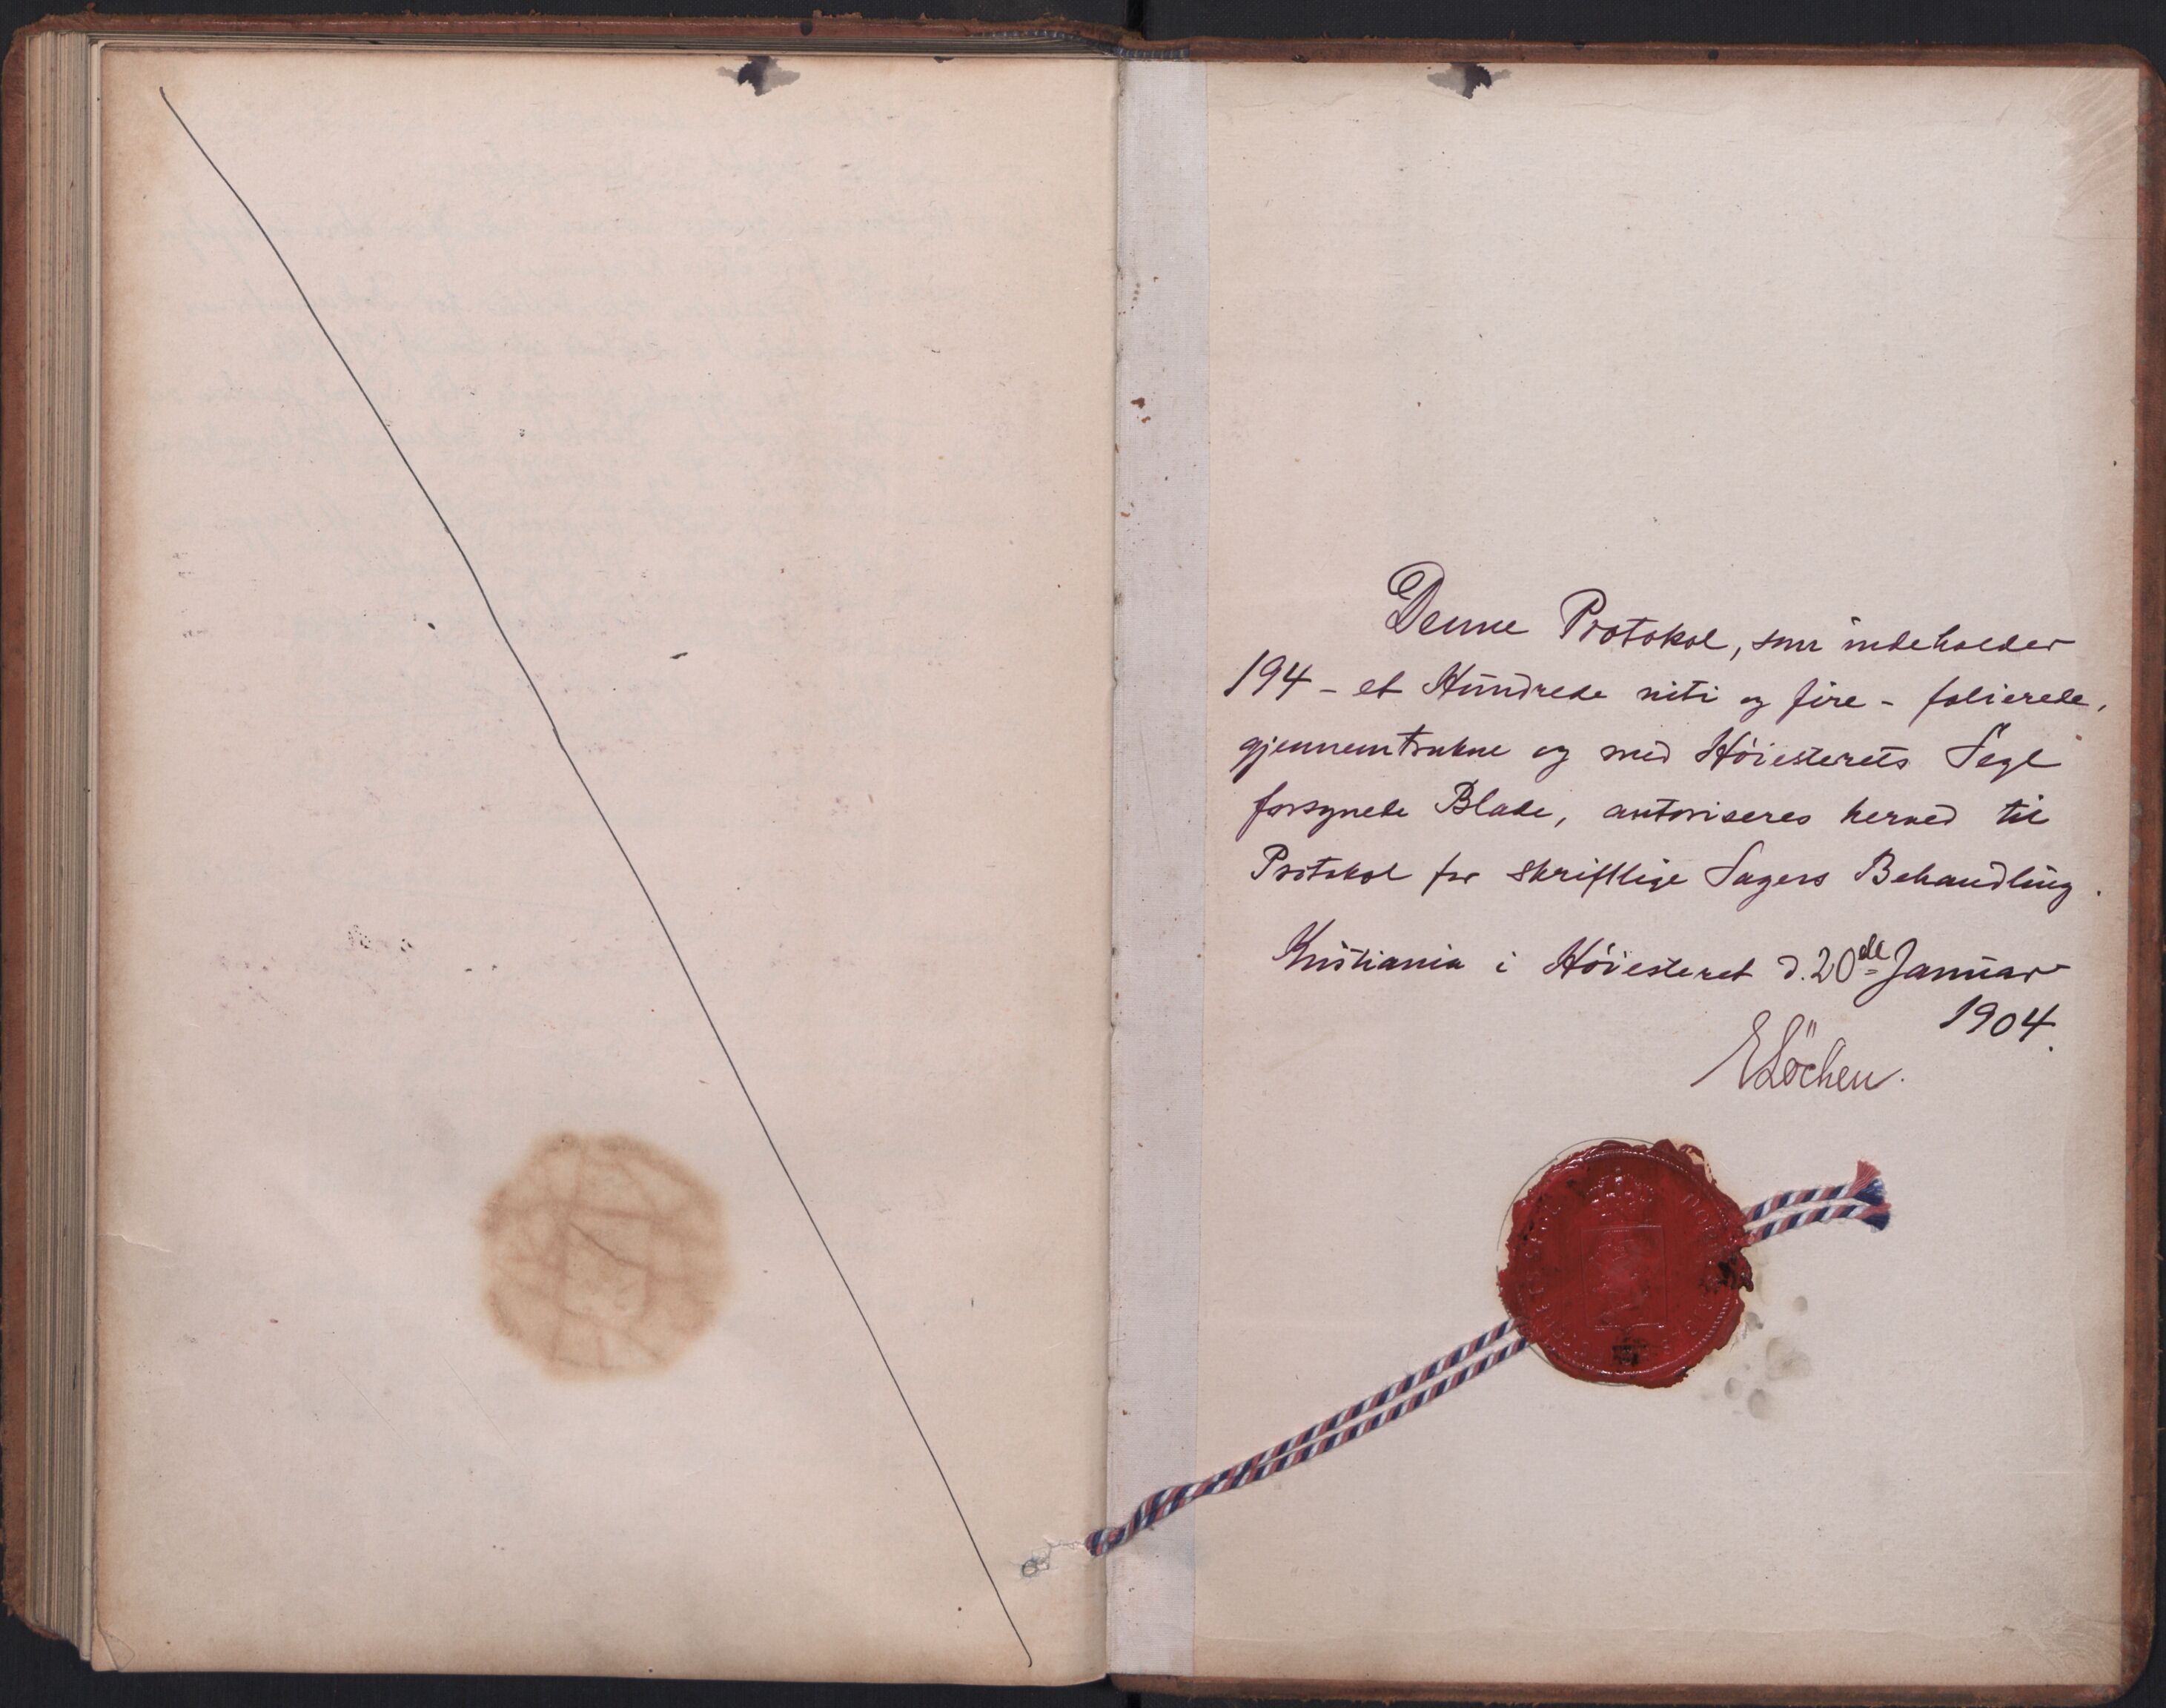 Denne Protokol, som indeholder
194 - et Hundrede niti og fire - folierede,
gjennemtrukne og med Höiesterets Segl
forsynede Blade, autoriseres herved til
Protokol for skriftlige Sagers Behandling.
Kristiania i Höiesteret d. 20de Januar
1904.
E Löchen.